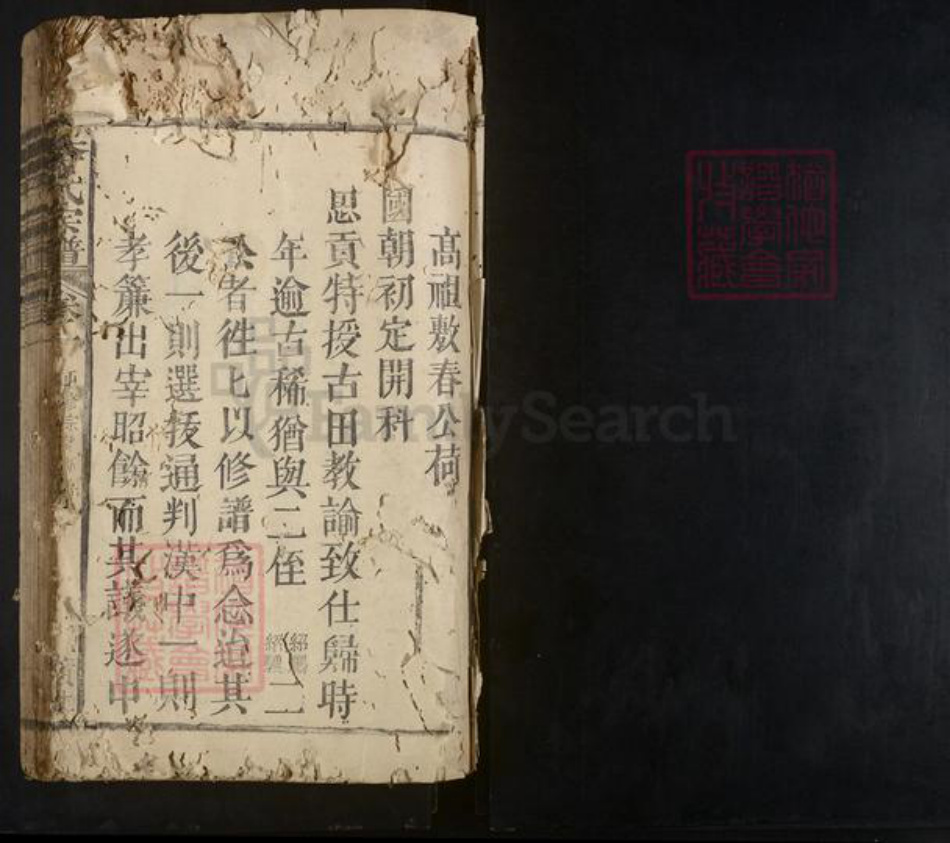 高祖敷春公荷
國朝初定開科
思貢特授古田教諭致仕歸時
年逾古稀猶與二侄
二
者徃匕以修譜爲念迨其
後一則選拔通判漢中一則
孝簾出宰昭餘而其議遂中
氏宗譜
卷
FamilySearch